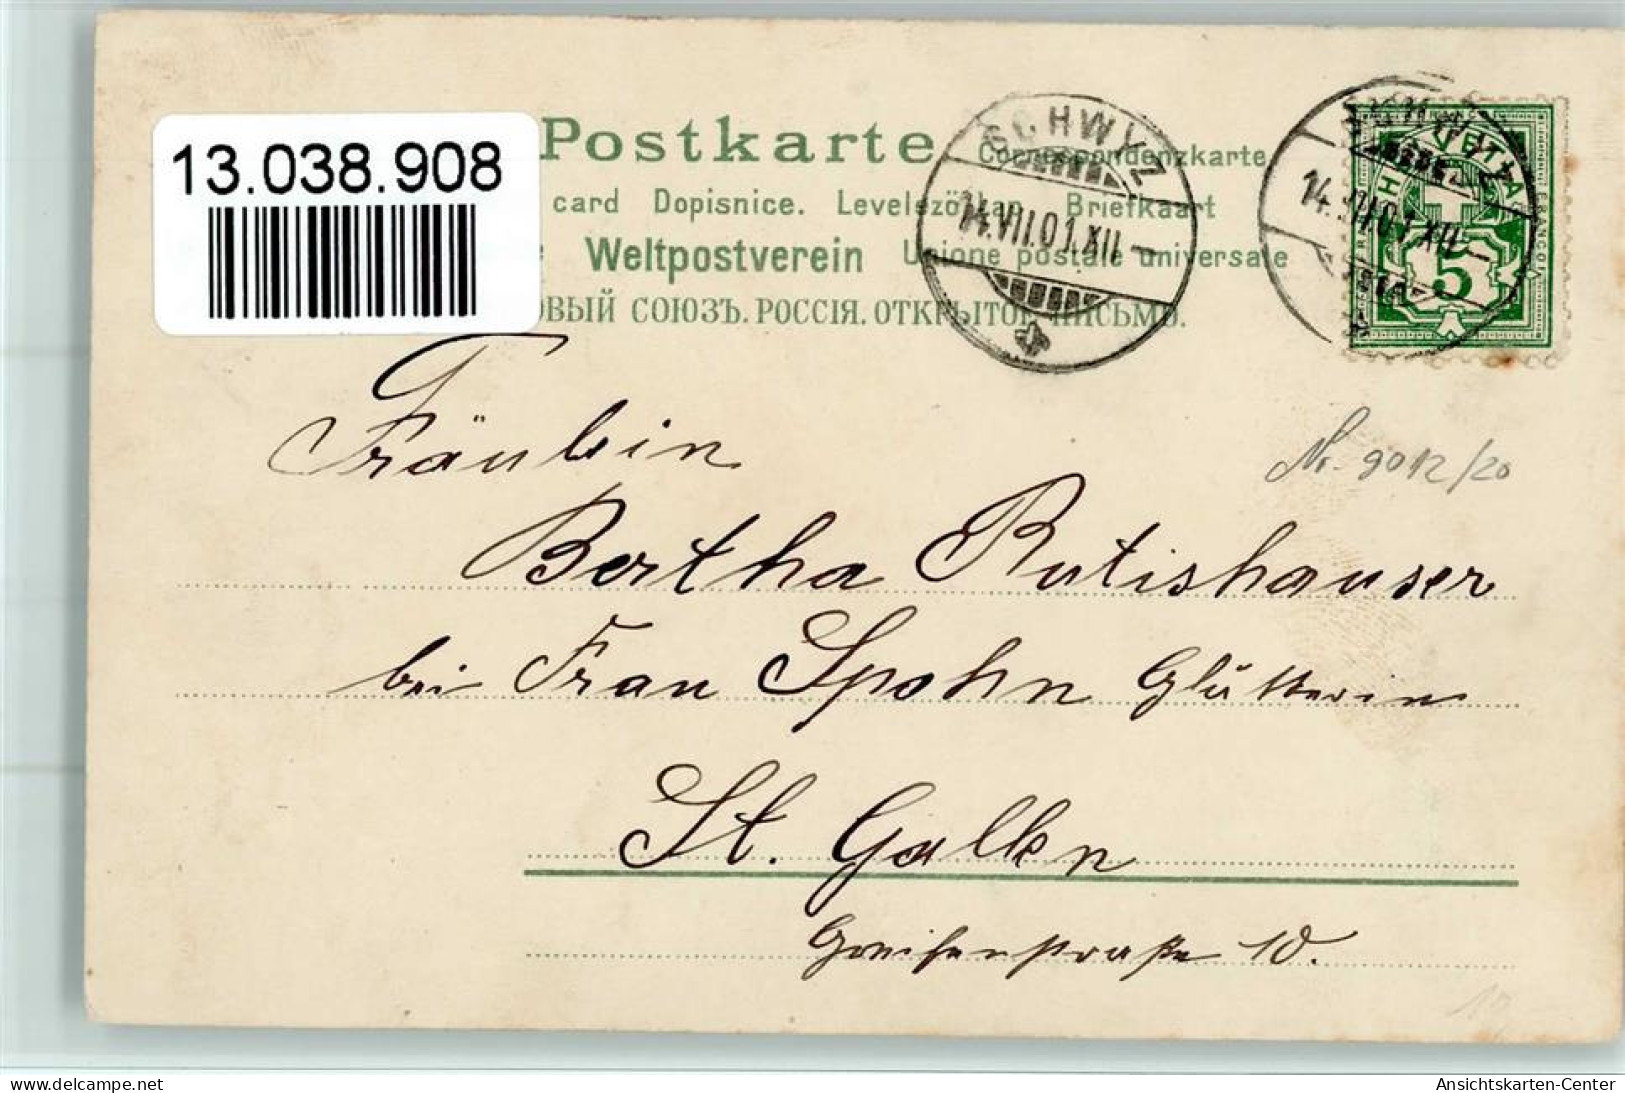 13.038.908
Postkarte Correspondenzkarte
card Dopisnice. Levelezö lap Briefkaart
Weltpostverein Unione postale universale
ОВЫЙ СОЮЗЪ. РОССІЯ. ОТКРЫТОЕ ПИСЬМО.
SCHWYZ
14.VII.01.XII
SCHWYZ
14.VII.01.XII
HELVETIA
FRANCO
5
Nr. 9012/20
Fräulein
Bertha Rutishauser
bei Frau Spohn Glätterin
St. Gallen
Greifenstraße 10.
delcampe.net
Ansichtskarten-Center